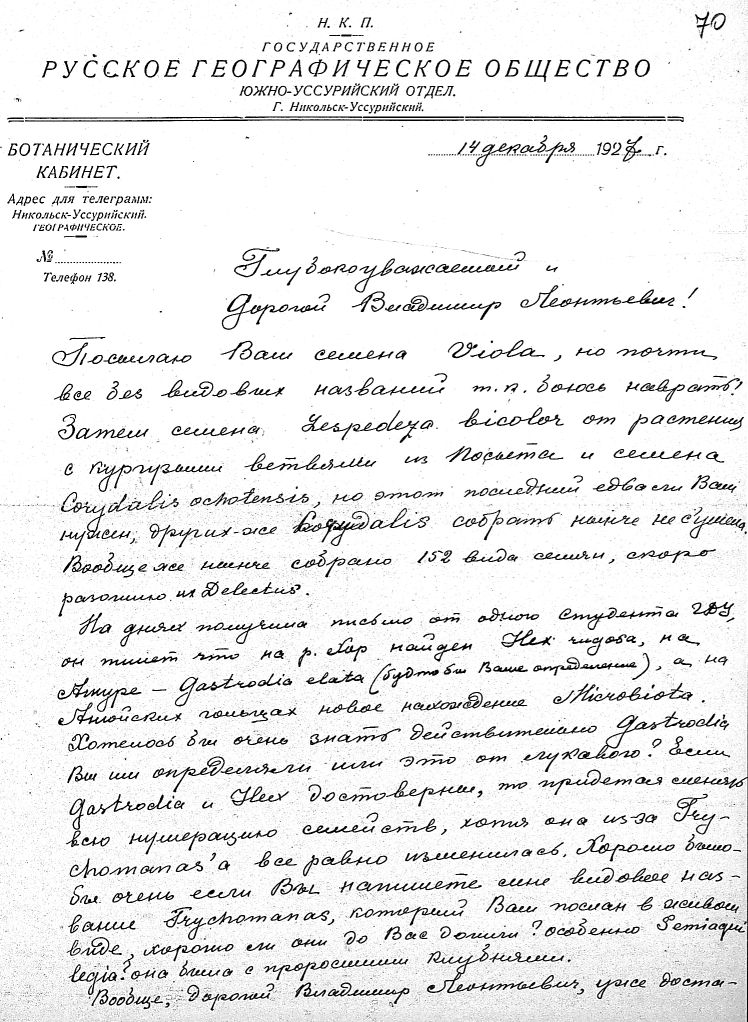 70
Н. К. П.
ГОСУДАРСТВЕННОЕ
РУССКОЕ ГЕОГРАФИЧЕСКОЕ ОБЩЕСТВО
ЮЖНО-УССУРИЙСКИЙ ОТДЕЛ.
Г. Никольск-Уссурийский.
БОТАНИЧЕСКИЙ
КАБИНЕТ.
14 декабря 1927 г.
Адрес для телеграмм:
Никольск-Уссурийский.
ГЕОГРАФИЧЕСКОЕ.
№
Телефон 138.
Глубокоуважаемый и
Дорогой Владимир Леонтьевич!
Посылаю Вам семена Viola, но почти
все без видовых названий т.к. боюсь наврать!
Затем семена Lespedeza bicolor от растений
с курчавыми ветвями из Посьета и семена
Corydalis ochotensis, но этот последний едва ли Вам
нужен, других-же Corydalis собрать нынче не сумела.
Вообще же нынче собрано 152 вида семян, скоро
разошлю их Delectus.
На днях получила письмо от одного студента ГДУ,
он пишет что на р. Хор найден Ilex rugosa, на
Амуре — Gastrodia elata (будто бы Ваше определение), а на
Анюйских гольцах новое нахождение Microbiota.
Хотелось бы очень знать действительно Gastrodia
Вы ли определяли или это от лукавого? Если
Gastrodia и Ilex достоверны, то придется сменять
всю нумерацию семейств, хотя она из-за Try-
chomanas'а все равно изменилась. Хорошо было-
бы очень если Вы напишете мне видовое наз-
вание Trychomanas, который Вам послан в живом
виде, хорошо ли они до Вас дошли? особенно Semiaqui
legia? она была с проросшими клубнями.
Вообще, дорогой Владимир Леонтьевич, уже доста-